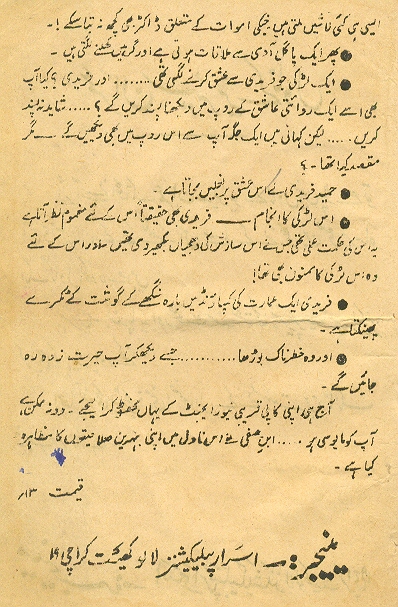 ایسی ہی کئی لاشیں ملتی ہیں جنکی اموات کے متعلق ڈاکٹر بھی کچھ نہ بتا سکے !۔
● پھر ایک پاگل آدمی سے ملاقات ہوتی ہے اور گرہیں کھلنے لگتی ہیں ۔
● ایک لڑکی جو فریدی سے عشق کرنے لگی تھی ........ اور فریدی ؟ کیا آپ
بھی اسے ایک روائتی عاشق کے روپ میں دیکھنا پسند کریں گے ؟ ..... شاید نہ پسند
کریں ..... لیکن کہانی میں ایک جگہ آپ سے اس روپ میں بھی دیکھیں گے ــــ مگر
مقصد کیا تھا ۔ ؟
● حمید فریدی سے اس عشق پر بغلیں بجاتا ہے ۔
● اس لڑکی کا انجام ــــ فریدی بھی حقیقتاً اس کے لئے مغموم نظر آتا ہے
یہ اس کی حکمت عملی تھی جس نے اس سازش کی دھجیاں بکھیر دی تھیں اور اس کے لئے
وہ اس لڑکی کا ممنون بھی تھا !
● فریدی ایک عمارت کی کمپاؤنڈ میں بارہ سنگھے کے گوشت کے ٹکڑے
پھینکتا ہے ۔
● اور وہ خطرناک بوڑھا ........... جسے دیکھکر آپ حیرت زدہ رہ
جائیں گے ۔
آج ہی اپنی کاپی قریبی نیوز ایجنٹ کے یہاں محفوظ کرا لیجئے ۔ ورنہ ممکن ہے
آپ کو مایوسی ہو ..... ابن صفی نے اس ناول میں اپنی بہترین صلاحیتوں کا مظاہرہ
کیا ہے ۔
قیمت ۱۳/
مینجر :ــ اسرار پبلیکیشنز لالو کھیت کراچی ۱۹